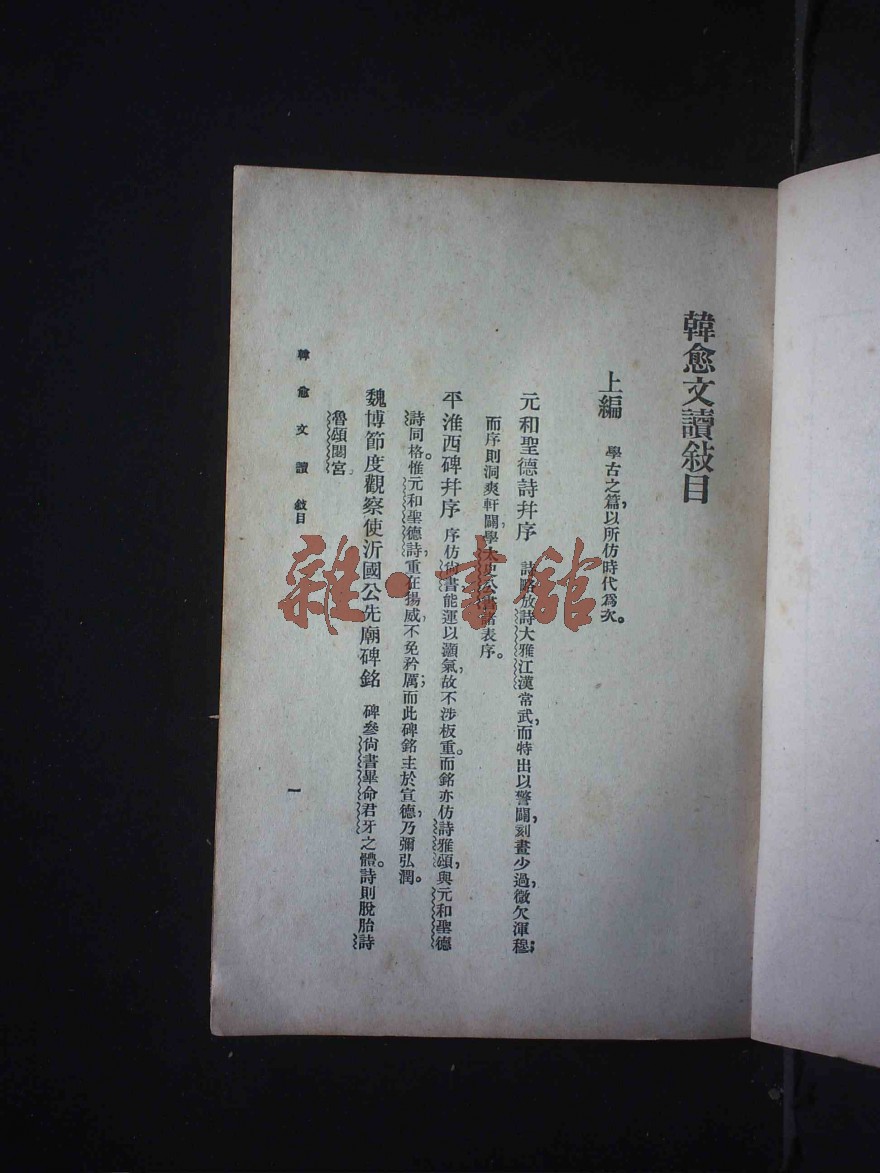 韓愈文讀敍目
上編　學古之篇，以所仿時代爲次。
元和聖德詩幷序　詩略放詩大雅江漢常武，而特出以警闢，刻畫少過，微欠渾穆；
而序則洞爽軒闢，學太史公書諸表序。
平淮西碑幷序　序仿尙書能運以灝氣，故不涉板重。而銘亦仿詩雅頌，與元和聖德
詩同格。惟元和聖德詩，重在揚威，不免矜厲；而此碑銘主於宣德，乃彌弘潤。
魏博節度觀察使沂國公先廟碑銘　碑參尙書畢命君牙之體。詩則脫胎詩
魯頌閟宮。
韓愈文讀　敍目
一
雜·書館